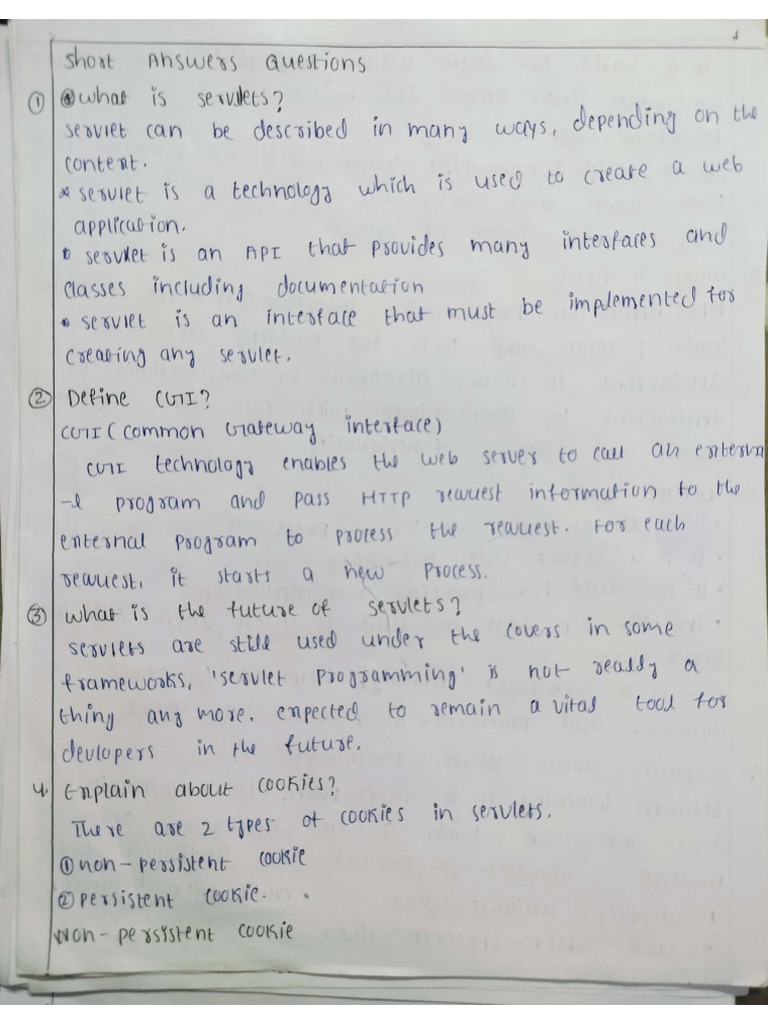 Short Answers Questions
① what is servlets?
servlet can be described in many ways, depending on the
content.
* servlet is a technology which is used to create a web
application.
• servlet is an API that provides many interfaces and
classes including documentation
• servlet is an interface that must be implemented for
creating any servlet.
② Define CGI?
CGI (Common Gateway interface)
CGI technology enables the web server to call an extern
-l program and pass HTTP request information to the
external program to process the request. For each
request, it starts a new process.
③ what is the future of servlets?
servlets are still used under the covers in some
frameworks, 'servlet programming' is not really a
thing any more. expected to remain a vital tool for
devlopers in the future.
4. Explain about cookies?
There are 2 types of cookies in servlets.
① non-persistent cookie
② persistent cookie.
Non-persistent cookie